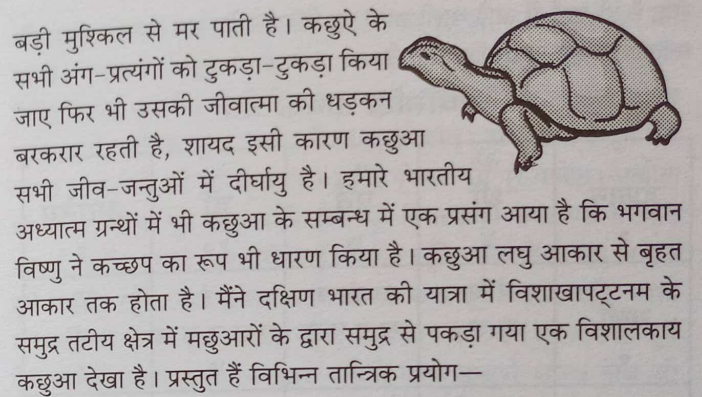 बड़ी मुश्किल से मर पाती है। कछुऐ के
सभी अंग-प्रत्यंगों को टुकड़ा-टुकड़ा किया
जाए फिर भी उसकी जीवात्मा की धड़कन
बरकरार रहती है, शायद इसी कारण कछुआ
सभी जीव-जन्तुओं में दीर्घायु है। हमारे भारतीय
अध्यात्म ग्रन्थों में भी कछुआ के सम्बन्ध में एक प्रसंग आया है कि भगवान
विष्णु ने कच्छप का रूप भी धारण किया है। कछुआ लघु आकार से बृहत
आकार तक होता है। मैंने दक्षिण भारत की यात्रा में विशाखापट्टनम के
समुद्र तटीय क्षेत्र में मछुआरों के द्वारा समुद्र से पकड़ा गया एक विशालकाय
कछुआ देखा है। प्रस्तुत हैं विभिन्न तान्त्रिक प्रयोग—